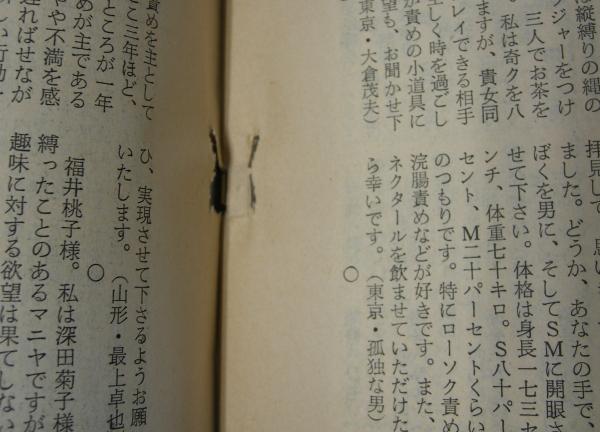 は縦縛りの縄の
ジャーをつけ
三人でお茶を
。私は奇クを八
ますが、貴女同
レイできる相手
しく時を過ごし
が責めの小道具に
望も、お聞かせ下
東京・大倉茂夫）
拝見して、思い
ました。どうか、あなたの手で、
ぼくを男に、そしてＳＭに開眼さ
せて下さい。体格は身長一七三セ
ンチ、体重七十キロ。Ｓ八十パー
セント、Ｍ二十パーセントくらい
のつもりです。特にローソク責め
浣腸責めなどが好きです。また、
ネクタールを飲ませていただけた
ら幸いです。（東京・孤独な男）
○
責めを主として
こ三年ほど、
ところが一年
めが主である
や不満を感
遅ればせなが
しい行動
ひ、実現させて下さるようお願
いたします。（山形・最上卓也
○
福井桃子様。私は深田菊子様
縛ったことのあるマニヤですが
趣味に対する欲望は果てしない